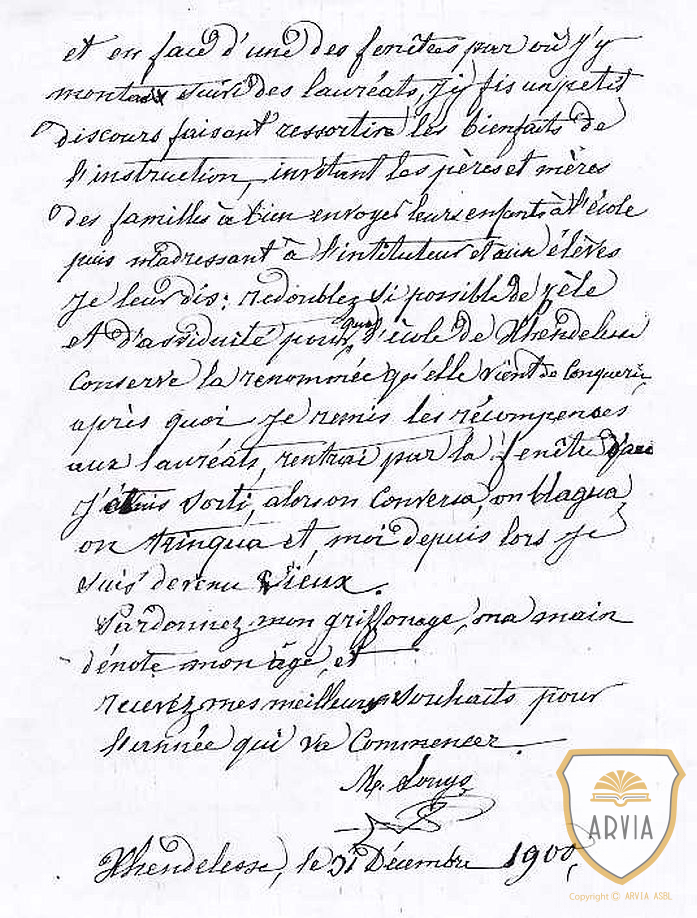 et en face d'une des fenêtres par où j'y
montai suivi des lauréats, j'y fis un petit
discours faisant ressortir les bienfaits de
l'instruction, invitant les pères et mères
des familles à bien envoyer leurs enfants à l'école
puis m'adressant à l'instituteur et aux élèves
je leur dis: redoublez si possible de zèle
et d'assiduité pour que l'école de Xhendelesse
conserve la renommée qu'elle vient de conquerir,
après quoi je remis les récompenses
aux lauréats, rentrai par la fenêtre d'où
j'étais sorti, alors on conversa, on blagua,
on trinqua et, moi depuis lors je
suis devenu vieux.
Pardonnez mon griffonage, ma main
dénote mon âge, et
recevez mes meilleurs souhaits pour
l'année qui va commencer.
M. Louys
Xhendelesse, le 31 Décembre 1900,
ARVIA
Copyright © ARVIA ASBL